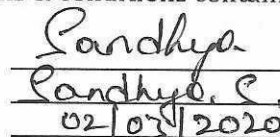 Sandhya
Sandhya. S
02/03/2020